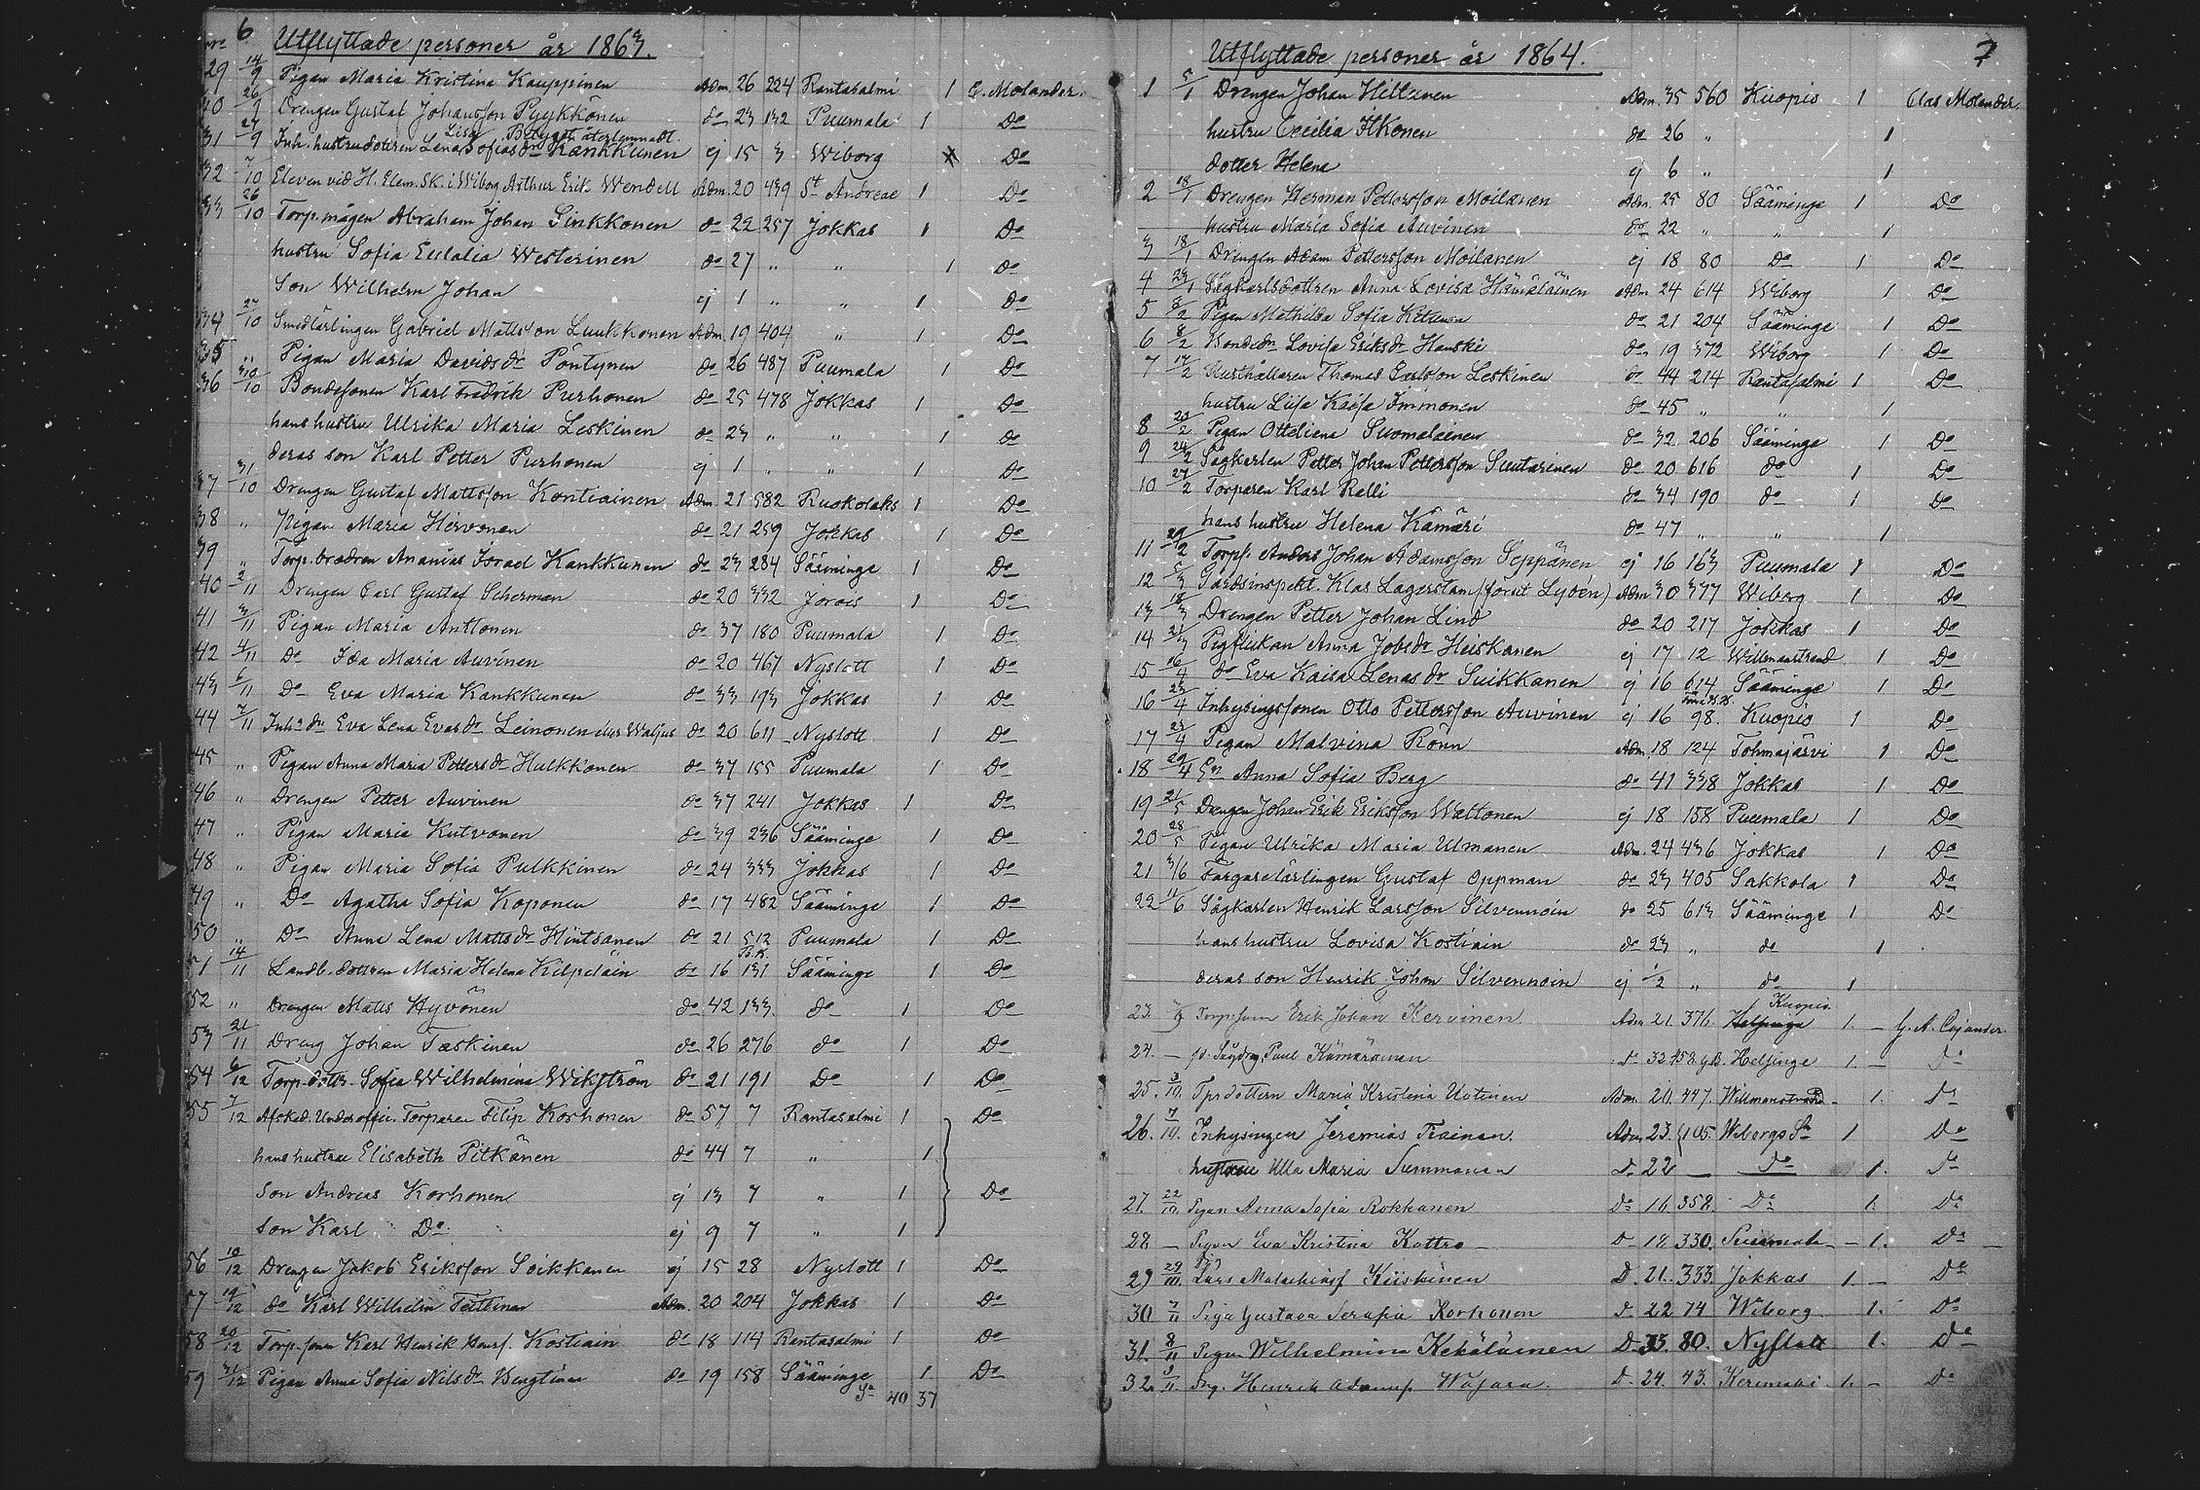 6 Utflyttade personer år 1863.
29 14/9 Pigan Maria Kristina Kauppinen Adm. 26 224 Rantasalmi 1 C. Molander.
30 26/9 Drengen Gustaf Johansson Pyykkönen do 23 132 Puumala 1 Do
Lisa Betyget återlemnadt
31 27/9 Inh. hustrudottren Lena Sofiasdr Kankkunen ej 15 3 Wiborg 1 Do
32 7/10 Eleven vid H. Elem. Sk. i Wiborg Arthur Erik Wendell Adm. 20 439 St Andreae 1 Do
33 26/10 Torp.mågen Abraham Johan Sinkkonen do 22 257 Jokkas 1 Do
hustru Sofia Eulalia Westerinen do 27 " " 1 Do
Son Wilhelm Johan ej 1 " " 1 Do
34 27/10 Smedlärlingen Gabriel Mattsson Luukkonen Adm. 19 404 " 1 Do
35 " Pigan Maria Davidsdr Pöntynen do 26 487 Puumala 1 Do
36 30/10 Bondesonen Karl Fredrik Purhonen do 25 478 Jokkas 1 Do
hans hustru Ulrika Maria Leskinen do 23 " " 1 do
deras son Karl Petter Purhonen ej 1 " " 1 Do
37 31/10 Drengen Gustaf Mattsson Kontiainen Adm. 21 582 Ruokolaks 1 Do
38 " Pigan Maria Hirvonen do 21 259 Jokkas 1 Do
39 " Torp. brodren Ananias Israel Kankkunen do 23 284 Sääminge 1 Do
40 2/11 Drengen Carl Gustaf Scherman do 20 332 Jorois 1 Do
41 3/11 Pigan Maria Anttonen do 37 180 Puumala 1 Do
42 4/11 Do Ida Maria Auvinen do 20 467 Nyslott 1 Do
43 6/11 Do Eva Maria Kankkunen do 33 193 Jokkas 1 Do
44 7/11 Inh: dr Eva Lena Evasdr Leinonen do 20 611 Nyslott 1 Do
45 " Pigan Anna Maria Pettersdr Hulkkonen do 37 155 Puumala 1 Do
46 " Drengen Petter Auvinen do 37 241 Jokkas 1 Do
47 " Pigan Maria Kutvonen do 39 236 Sääminge 1 Do
48 " Pigan Maria Sofia Pulkkinen do 24 333 Jokkas 1 Do
49 " Do Agatha Sofia Koponen do 17 482 Sääminge 1 Do
50 " Do Anna Lena Mattsdr Hintsanen do 21 512 Puumala 1 Do
B.K.
51 14/11 Landb. dottren Maria Helena Kilpeläin do 16 131 Sääminge 1 Do
52 " Drengen Matts Hyvönen do 42 133 do 1 Do
53 21/11 Dreng Johan Taskinen do 26 276 do 1 Do
54 6/12 Torp. dottr. Sofia Wilhelmina Wikström do 21 191 Do 1 Do
55 7/12 Afsked. Underoffic. Torparen Filip Korhonen do 57 7 Rantasalmi 1 Do
hans hustru Elisabeth Pitkänen do 44 7 " 1
Son Andreas Korhonen ej 13 7 " 1 Do
Son Karl Do ej 9 7 " 1
56 10/12 Drengen Jakob Eriksson Soikkanen ej 15 28 Nyslott 1 Do
57 19/12 do Karl Wilhelm Teittinen Adm. 20 204 Jokkas 1 Do
58 20/12 Torp. sonen Karl Henrik Henrs. Kostiain do 18 114 Rantasalmi 1 Do
59 31/12 Pigan Anna Sofia Nilsdr Bengtinen do 19 158 Sääminge 1 Do
Sa 40 37
Utflyttade personer år 1864. 7
1 5/1 Drengen Johan Hiltunen Adm. 35 560 Kuopio 1 Clas Molander.
hustru Cecilia Ikonen do 26 " 1
dotter Helena ej 6 " 1
2 18/1 Drengen Herman Pettersson Moilanen Adm. 25 80 Sääminge 1 Do
hustru Maria Sofia Auvinen do 22 " " 1
3 18/1 Drengen Adam Pettersson Moilanen ej 18 80 Do 1 Do
4 23/1 Sågkarlsdottren Anna Lovisa Hämäläinen Adm 24 614 Wiborg 1 Do
5 8/2 Pigan Mathilda Sofia Ketunen do 21 204 Sääminge 1 Do
6 8/2 Bondedr Lovisa Eriksdr Hauski do 19 372 Wiborg 1 Do
7 17/2 Husthållaren Thomas Carlsson Leskinen do 44 214 Rantasalmi 1 Do
hustru Liisa Kaisa Immonen do 45 " " 1
8 20/2 Pigan Otteliana Suomalainen do 32 206 Sääminge 1 Do
9 24/2 Sågkarlen Petter Johan Pettersson Suutarinen do 20 616 do 1 Do
10 27/2 Torparen Karl Ralli do 34 190 do 1 Do
hans hustru Helena Kämäri do 47 " " 1
11 29/2 Torps. Anders Johan Adamsson Seppänen ej 16 163 Puumala 1 Do
12 5/3 Gårdsinspekt. Klas Lagerstam (förut Lydén) Adm 30 377 Wiborg 1 Do
13 18/3 Drengen Petter Johan Lind do 20 217 Jokkas 1 Do
14 21/3 Pigflickan Anna Jobsdr Heiskanen ej 17 12 Willmanstrand 1 Do
15 16/4 do Eva Kaisa Lenasdr Suikkanen ej 16 614 Sääminge 1 Do
16 23/4 Inhysingssonen Otto Pettersson Auvinen ej 16 98. Kuopio 1 Do
17 23/4 Pigan Malvina Rönn Adm. 18 124 Tohmajärvi 1 Do
18 29/4 En Anna Sofia Berg do 41 338 Jokkas 1 Do
19 21/5 Drengen Johan Erik Eriksson Wattonen ej 18 158 Puumala 1 Do
20 28/5 Pigan Ulrika Maria Ulmanen Adm. 24 436 Jokkas 1 Do
21 3/6 Färgarelärlingen Gustaf Oppman do 23 405 Sakkola 1 Do
22 11/6 Sågkarlen Henrik Larsson Silvennoin do 25 613 Sääminge 1 Do
hans hustru Lovisa Kostiain do 23 " do 1
deras son Henrik Johan Silvennoin ej 1/2 " do 1
Kuopio
23. Torp.son Erik Johan Kervinen Adm 21. 376. Helsinge 1. — G. A. Cajander.
24. — Paul Kämäräinen do 32 Helsinge 1. — Do
25. 3/10. Tprdottern Maria Kristina Uotinen Adm. 20. 447. Willmanstrand — 1. Do
26. 7/10. Inhysingen Jeremias Trainan. Adm 23. 105. Wiborgs Sn 1 Do
hustrun Ulla Maria Summanen Do 22 — Do 1. Do
27. 22/10. Pigan Anna Sofia Rokkanen Do 16. 358. Do 1. Do
28 — Pigan Eva Kristina Kattro — D 18 330. Puumala — 1. Do
29 29/10. Lars Malachiasf Kiiskinen D. 21. 333. Jokkas 1. — Do
30 7/11 Piga Gustava Serafia Korhonen D. 22 74 Wiborg 1. Do
31. 8/11 Pigan Wilhelmina Kekäläinen D. 33. 80. Nyslott 1. Do
32. 9/11. Drg. Henrik Adamsf. Wäfara. D. 24. 43. Kerimäki 1. — Do